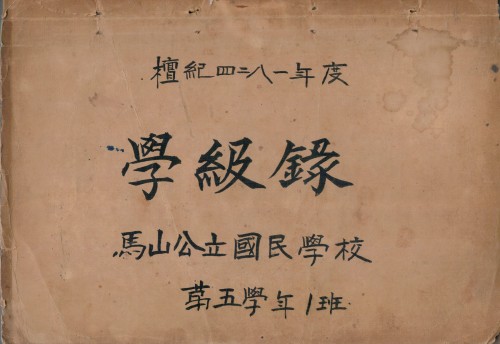 檀紀四二八一年度
學級錄
馬山公立國民學校
第五學年1班